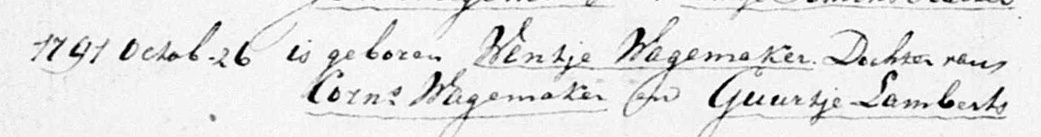 1791 Octob. 26 is geboren Wentje Wagemaker. Dochter van
Corns Wagemaker en Guurtje Lamberts